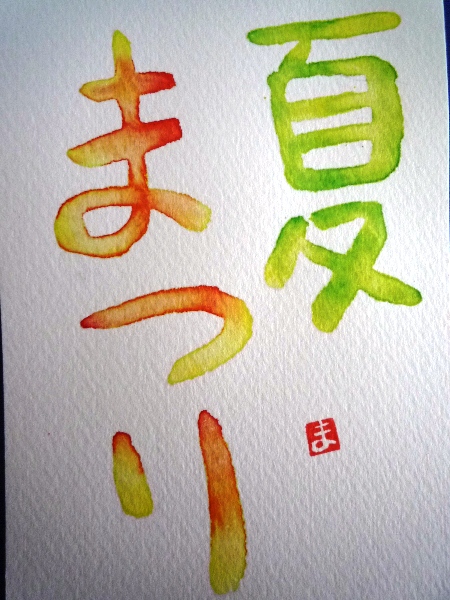 夏
まつり
ま